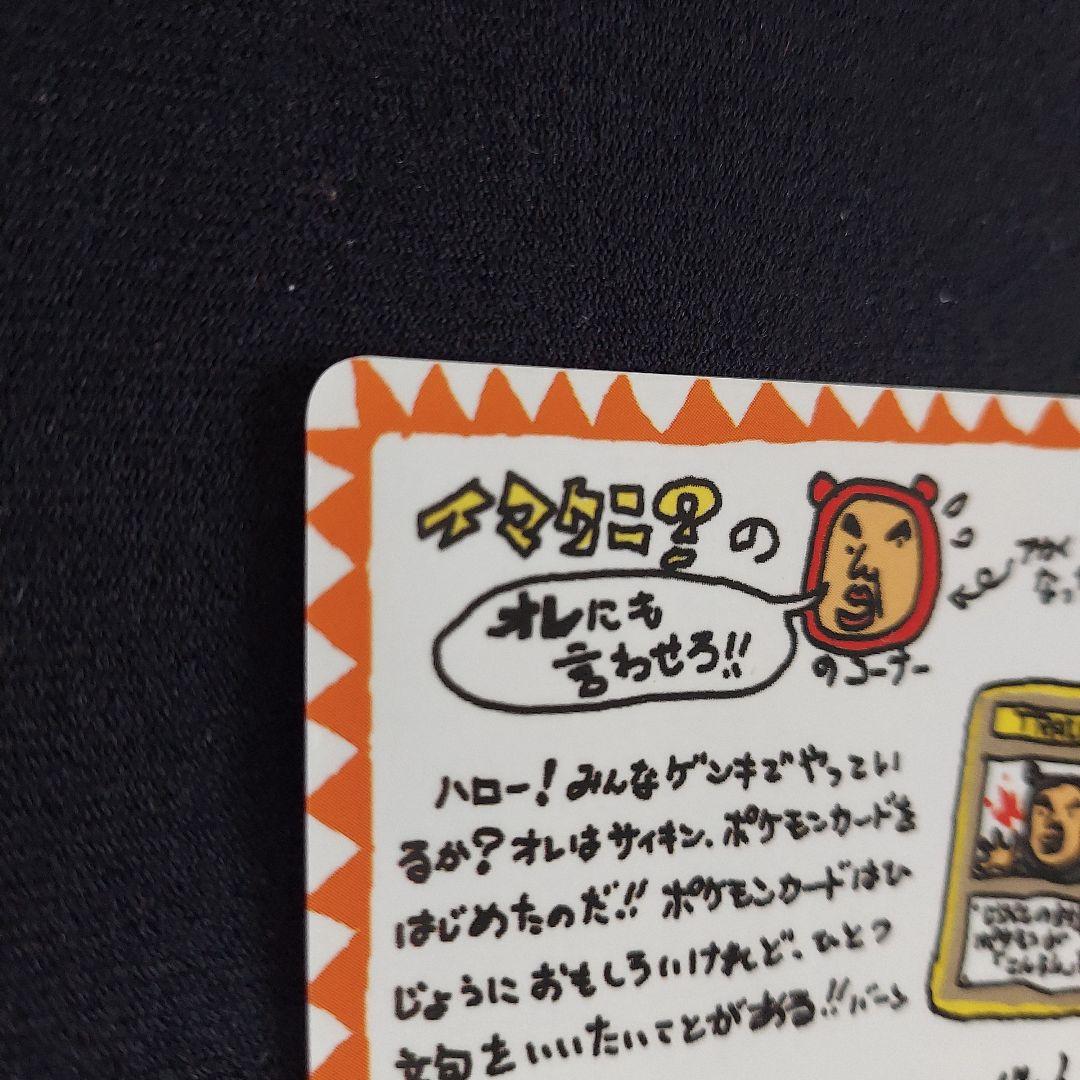 イマクニ?の
オレにも
言わせろ!!
のコーナー
ハロー!みんなゲンキでやってい
るか?オレはサイキン、ポケモンカードを
はじめたのだ!!ポケモンカードはひ
じょうにおもしろいけれど、ひとつ
文句をいいたいことがある!!バーン